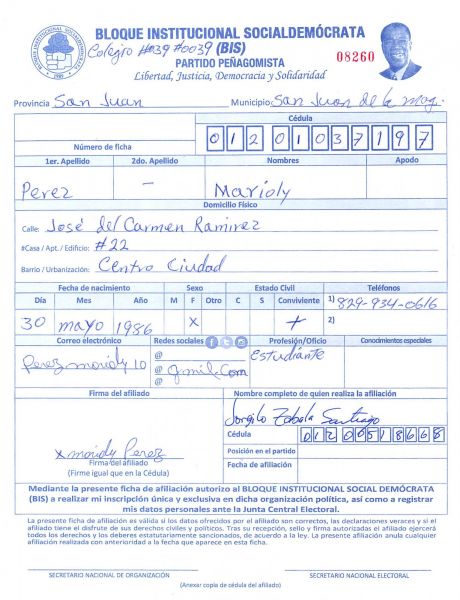 BLOQUE INSTITUCIONAL SOCIALDEMÓCRATA
(BIS)
Colegio #039 #0039
PARTIDO PEÑAGOMISTA
Libertad, Justicia, Democracia y Solidaridad
08260
Provincia San Juan Municipio: San Juan de la mag.
Cédula
Número de ficha 01201037197
1er. Apellido 2do. Apellido Nombres Apodo
Perez — Marioly
Domicilio Físico
Calle: José del Carmen Ramirez
#Casa / Apt. / Edificio: #22
Barrio / Urbanización: Centro Ciudad
Fecha de nacimiento Sexo Estado Civil Teléfonos
Día Mes Año M F Otro C S Conviviente 1) 829-934-0616
30 mayo 1986 X + 2)
Correo electrónico Redes sociales Profesión/Oficio Conocimientos especiales
@ Estudiante
@ gmil.com
@
Firma del afiliado Nombre completo de quien realiza la afiliación
Jorgilo Zabala Santiago
Cédula
Posición en el partido
x Perez
Firma del afiliado
(Firme igual que en la Cédula)
Firma
Mediante la presente ficha de afiliación autorizo al BLOQUE INSTITUCIONAL SOCIAL DEMÓCRATA
(BIS) a realizar mi inscripción única y exclusiva en dicha organización política, así como a registrar
mis datos personales ante la Junta Central Electoral.
La presente ficha de afiliación es válida si los datos ofrecidos por el afiliado son correctos, las declaraciones veraces y si el
afiliado tiene el disfrute de sus derechos civiles y políticos. Tras su recepción, sello y firma autorizadas el afiliado ejercerá
todos los derechos y los deberes estatutariamente sancionados, de acuerdo a la ley. La presente afiliación anula cualquier
afiliación realizada con anterioridad a la fecha que aparece en esta ficha.
SECRETARIO NACIONAL DE ORGANIZACIÓN SECRETARIO NACIONAL ELECTORAL
(Anexar copia de cédula del afiliado)